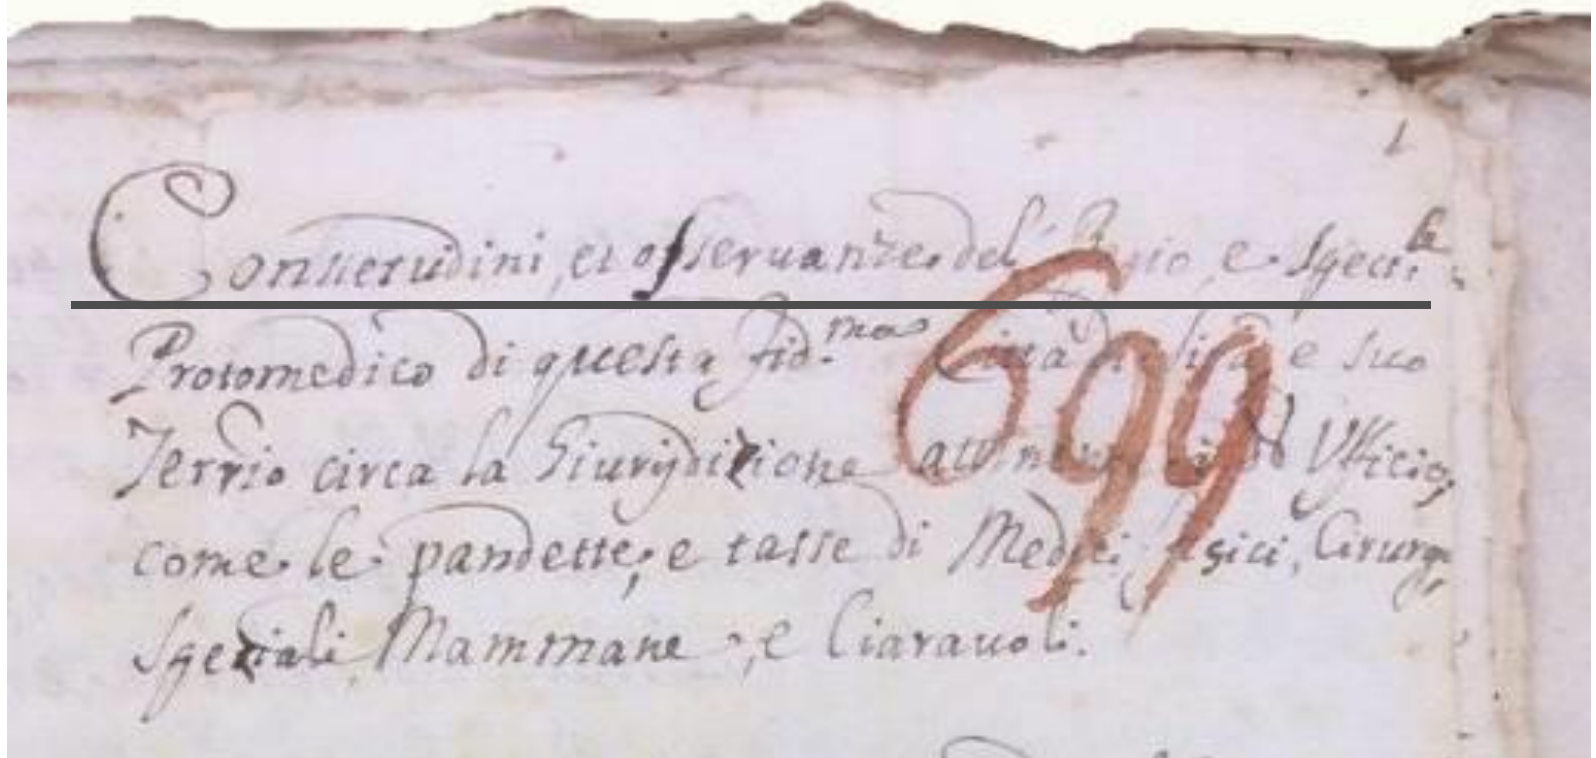 1
Consuetudini, et osservanze del Regio, e Spect.le
Protomedico di questa fid.ma Città e suo
Terr.io circa la Giurisdizione Ufficio,
come le pandette, e tasse di Medici fisici, Cirurgi
Speziali, Mammane, e Ciaravoli.
699